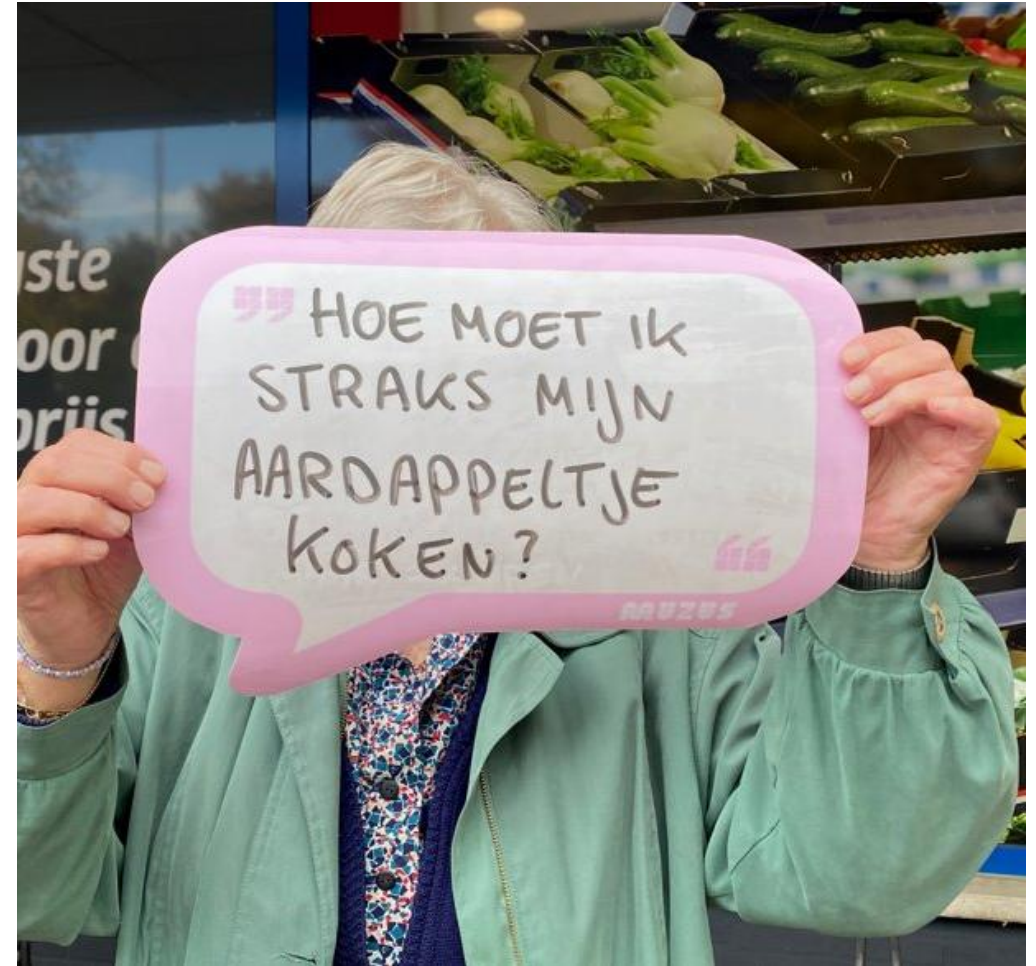 ” HOE MOET IK
STRAKS MIJN
AARDAPPELTJE
KOKEN? “
MUZUS
prijs